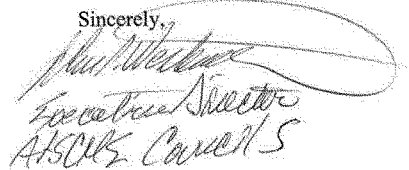 Sincerely,
Executive Director
AFSCME Council 5